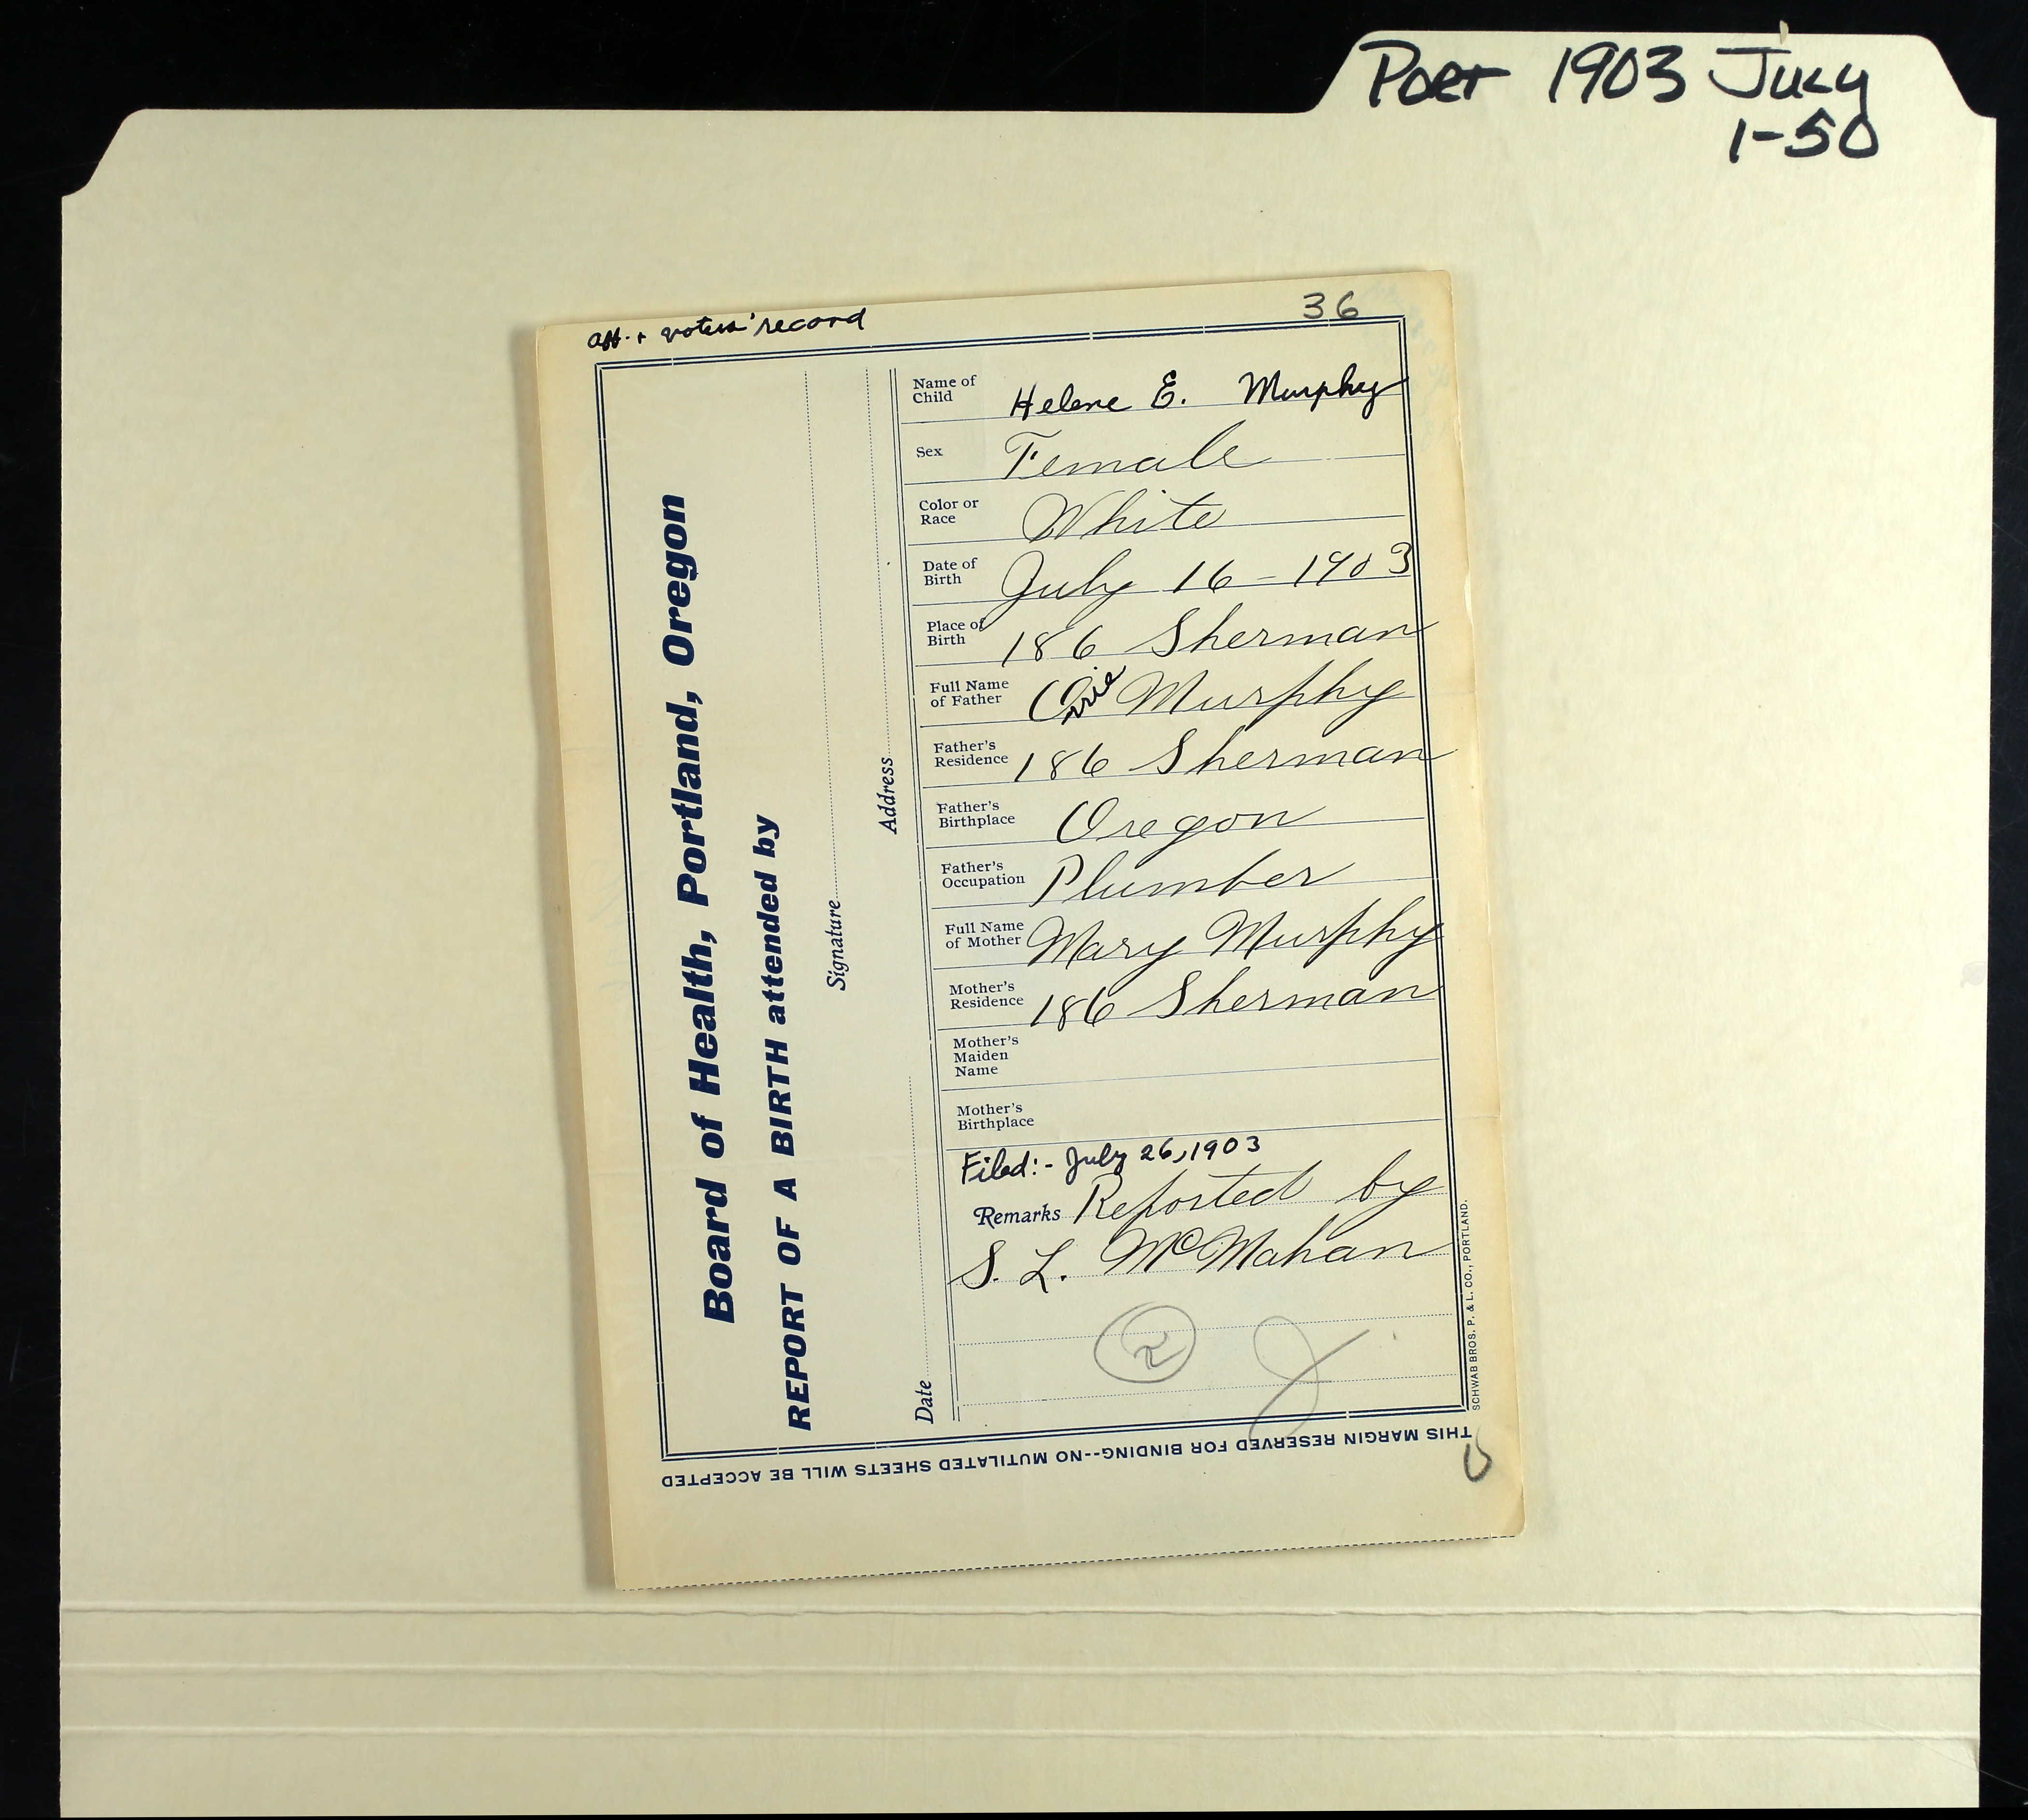 PORT 1903 JULY
1-50
aff. + voters' record
36
Board of Health, Portland, Oregon
REPORT OF A BIRTH attended by
Signature
Address
Date
Name of Child Helene E. Murphy
Sex Female
Color or Race White
Date of Birth July 16 - 1903
Place of Birth 186 Sherman
Full Name of Father Murphy
Father's Residence 186 Sherman
Father's Birthplace Oregon
Father's Occupation Plumber
Full Name of Mother Mary Murphy
Mother's Residence 186 Sherman
Mother's Maiden Name
Mother's Birthplace
Filed:- July 26, 1903
Remarks Reported by
S. L. McMahan
2
THIS MARGIN RESERVED FOR BINDING--NO MUTILATED SHEETS WILL BE ACCEPTED
SCHWAB BROS. P. & L. CO., PORTLAND.